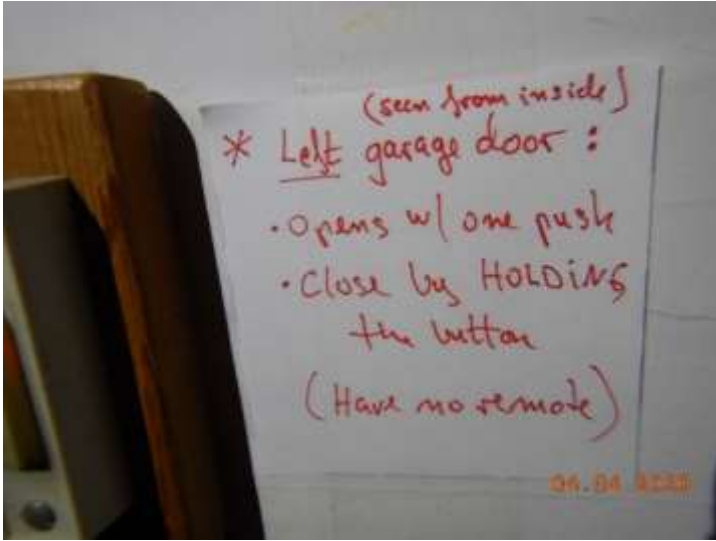 (seen from inside)
* Left garage door :
· Opens w/ one push
· Close by HOLDiNG
the button
(Have no remote)